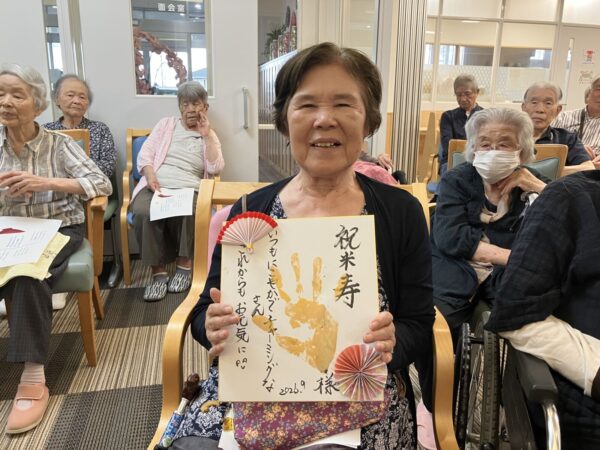 面会室
祝米寿
いつもにこやかでチャーミングな
さん
これからもお元気に!!
2025.9
様